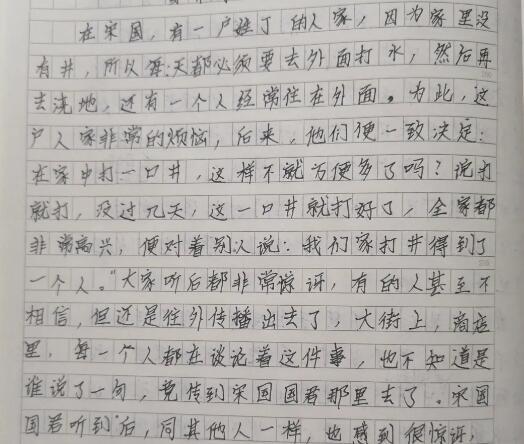 在宋国，有一户姓丁的人家，因为家里没
有井，所以每天都必须要去外面打水，然后再
去浇地，还有一个人经常住在外面。为此，这
户人家非常的烦恼，后来，他们便一致决定：
在家中打一口井，这样不就方便多了吗？说打
就打，没过几天，这一口井就打好了，全家都
非常高兴，便对着别人说：我们家打井得到了
一个人。"大家听后都非常惊讶，有的人甚至不
相信，但还是往外传播出去了，大街上，商店
里，每一个人都在谈论着这件事，也不知道是
谁说了一句，竟传到宋国国君那里去了。宋国
国君听到后，同其他人一样，也感到很惊讶，